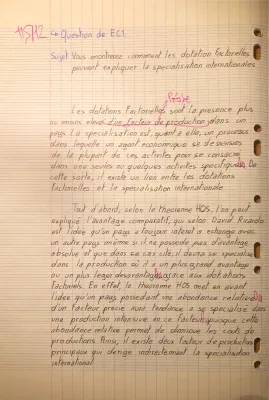 11,5/12 ↳ Question de EC1.
Sujet Vous montrerez comment les dotation factorielles
peuvent expliquer la spécialisation internationales
Les dotations Factorielles sont la présence plus
ou moins élevé d'un facteur de production dans un
pays. La spécialisation est, quant a elle, un processus
dans lequelle un agent economique se desaisies
de la plupart de ces activités pour se consacré
dans une seules ou quelques activités spécifiques. De
cette sorte, il existe un lien entre les dotations
factorielles et la spécialisation internationale.
Tout d'abord, selon le théorème HOS, l'on peut
expliquer l'avantage comparatif, qui selon David Ricardo
est l'idée qu'un pays a toujours interet a echange avec
un autre pays même si il ne possède pas d'avantage
absolue et que dans ce cas elle, il devra se spécialisé
dans la production où il a un plus grand avantage
ou un plus leger desavantage, grâce aux dotations
factoriels. En effet, le théorème HOS met en avant
l'idée qu'un pays possédant une abondance relative
d'un facteur précis aura tendance a se spécialisé dans
une production intensive en ce facteur puisque cette
abondance relative permet de diminué les coûts de
productions. Ainsi, il existe deux facteur de production
principaux qui dirige indirectement la spécialisation
international